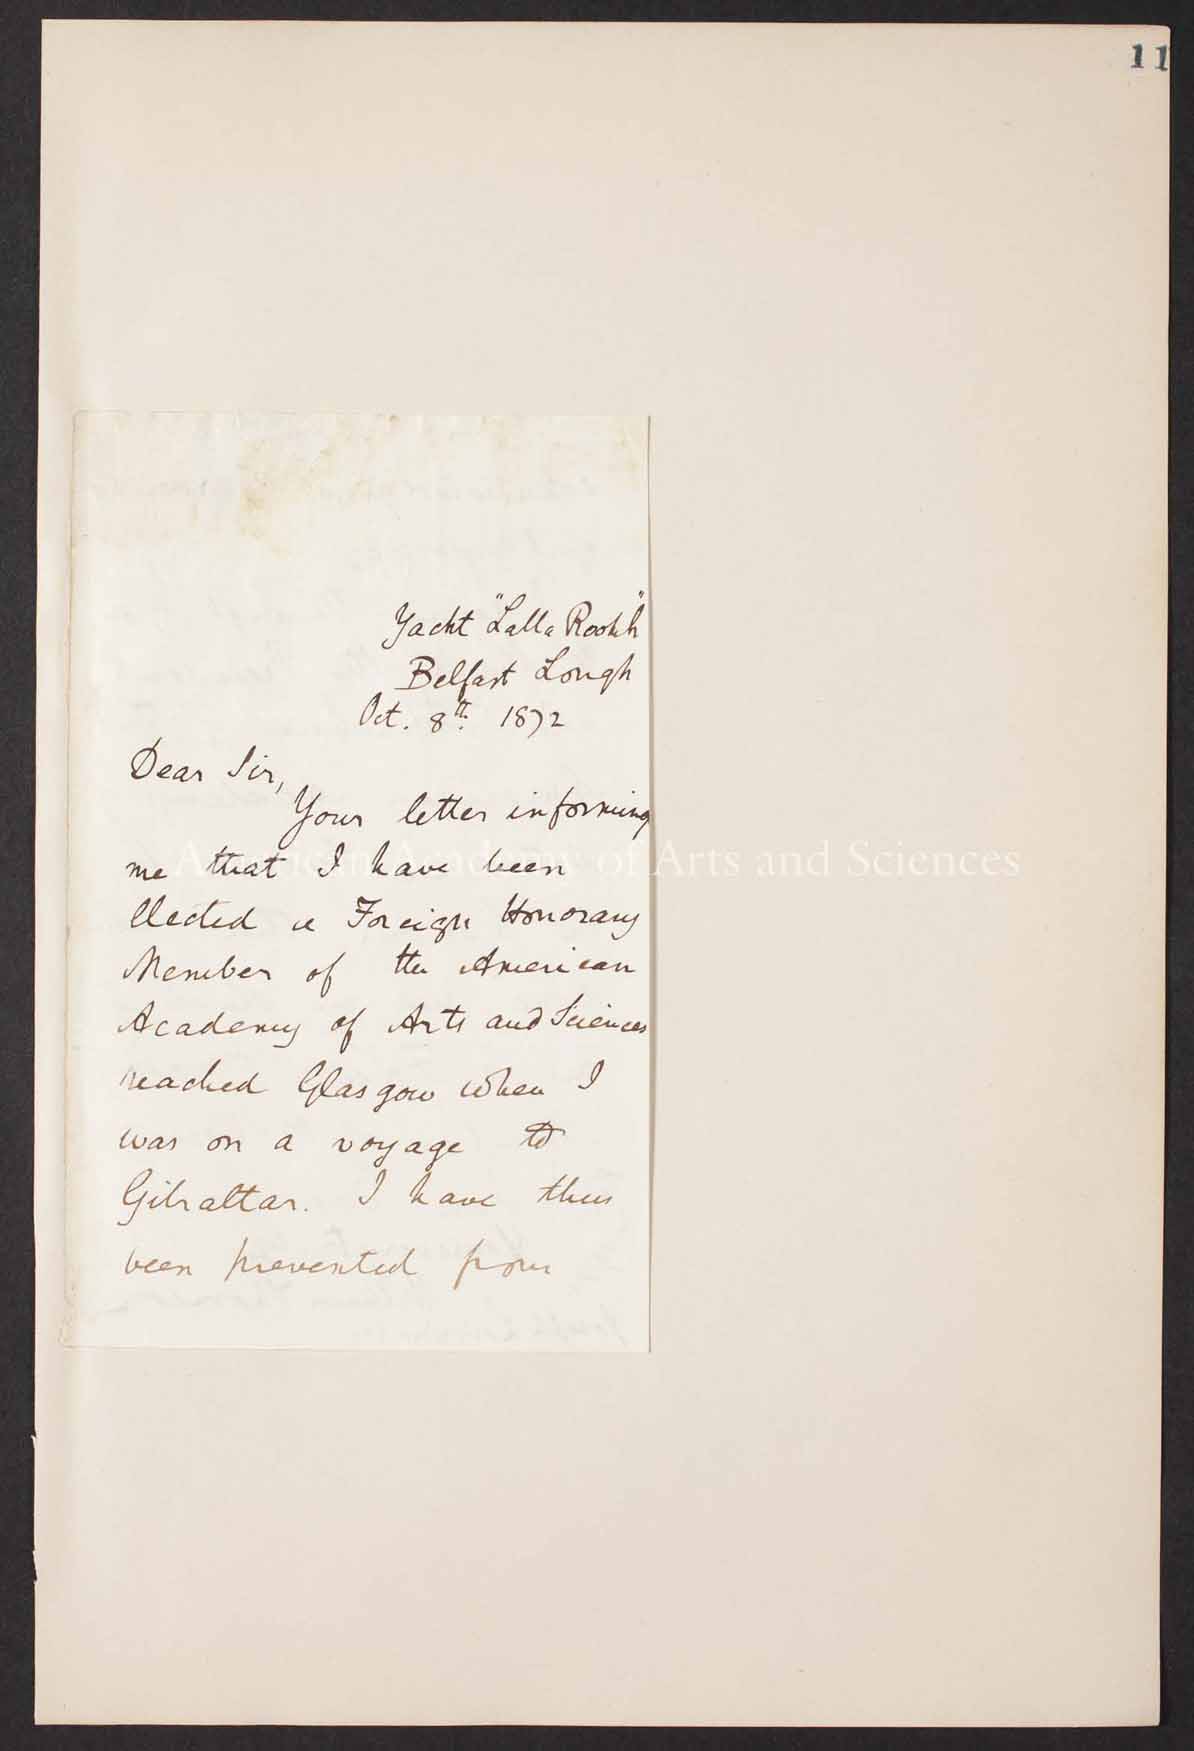 11
Yacht "Lalla Rookh"
Belfast Lough
Oct. 8th. 1872
Dear Sir,
Your letter informing
me that I have been
American Academy of Arts and Sciences
elected a Foreign Honorary
Member of the American
Academy of Arts and Sciences
reached Glasgow when I
was on a voyage to
Gibraltar. I have thus
been prevented from